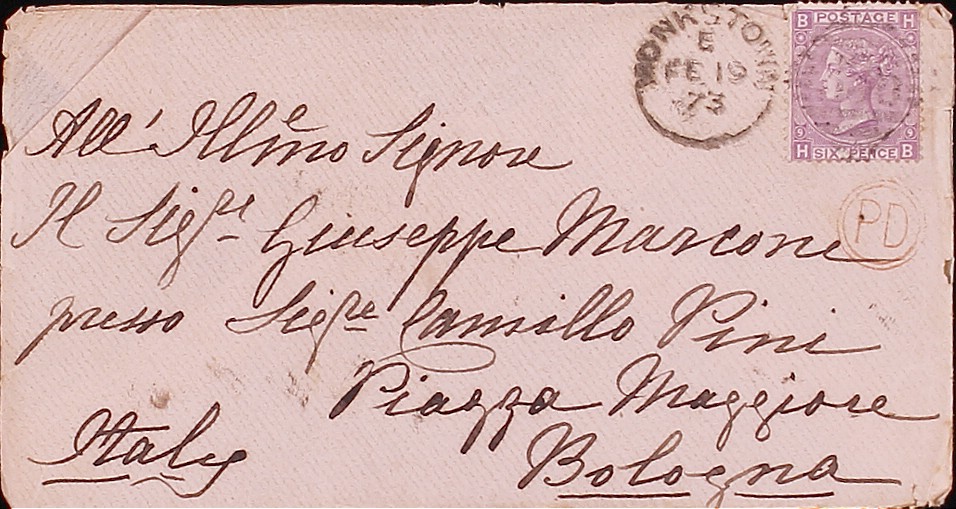 MONKSTOWN
E
FE 19
73
B POSTAGE H
9 9
H SIX PENCE B
All' Illmo Signore
Il Sigre Giuseppe Marcone
PD
presso Sigre Camillo Pini
Piazza Maggiore
Italy
Bologna